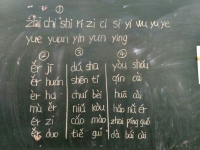 ①
zhi chi shi ri zi ci si yi wu yu ye
yue yuan yin yun ying
② ③ ④
ěr jī dà shǎ yòu shǒu
ěr huán shēn tǐ qín cài
ěr huā chuī bèi huā cài
mù ěr niú kòu hǎo nǚ ér
ér zi cǎo mào zhāi píng guǒ
ěr duo tiě guǐ dà bái cài